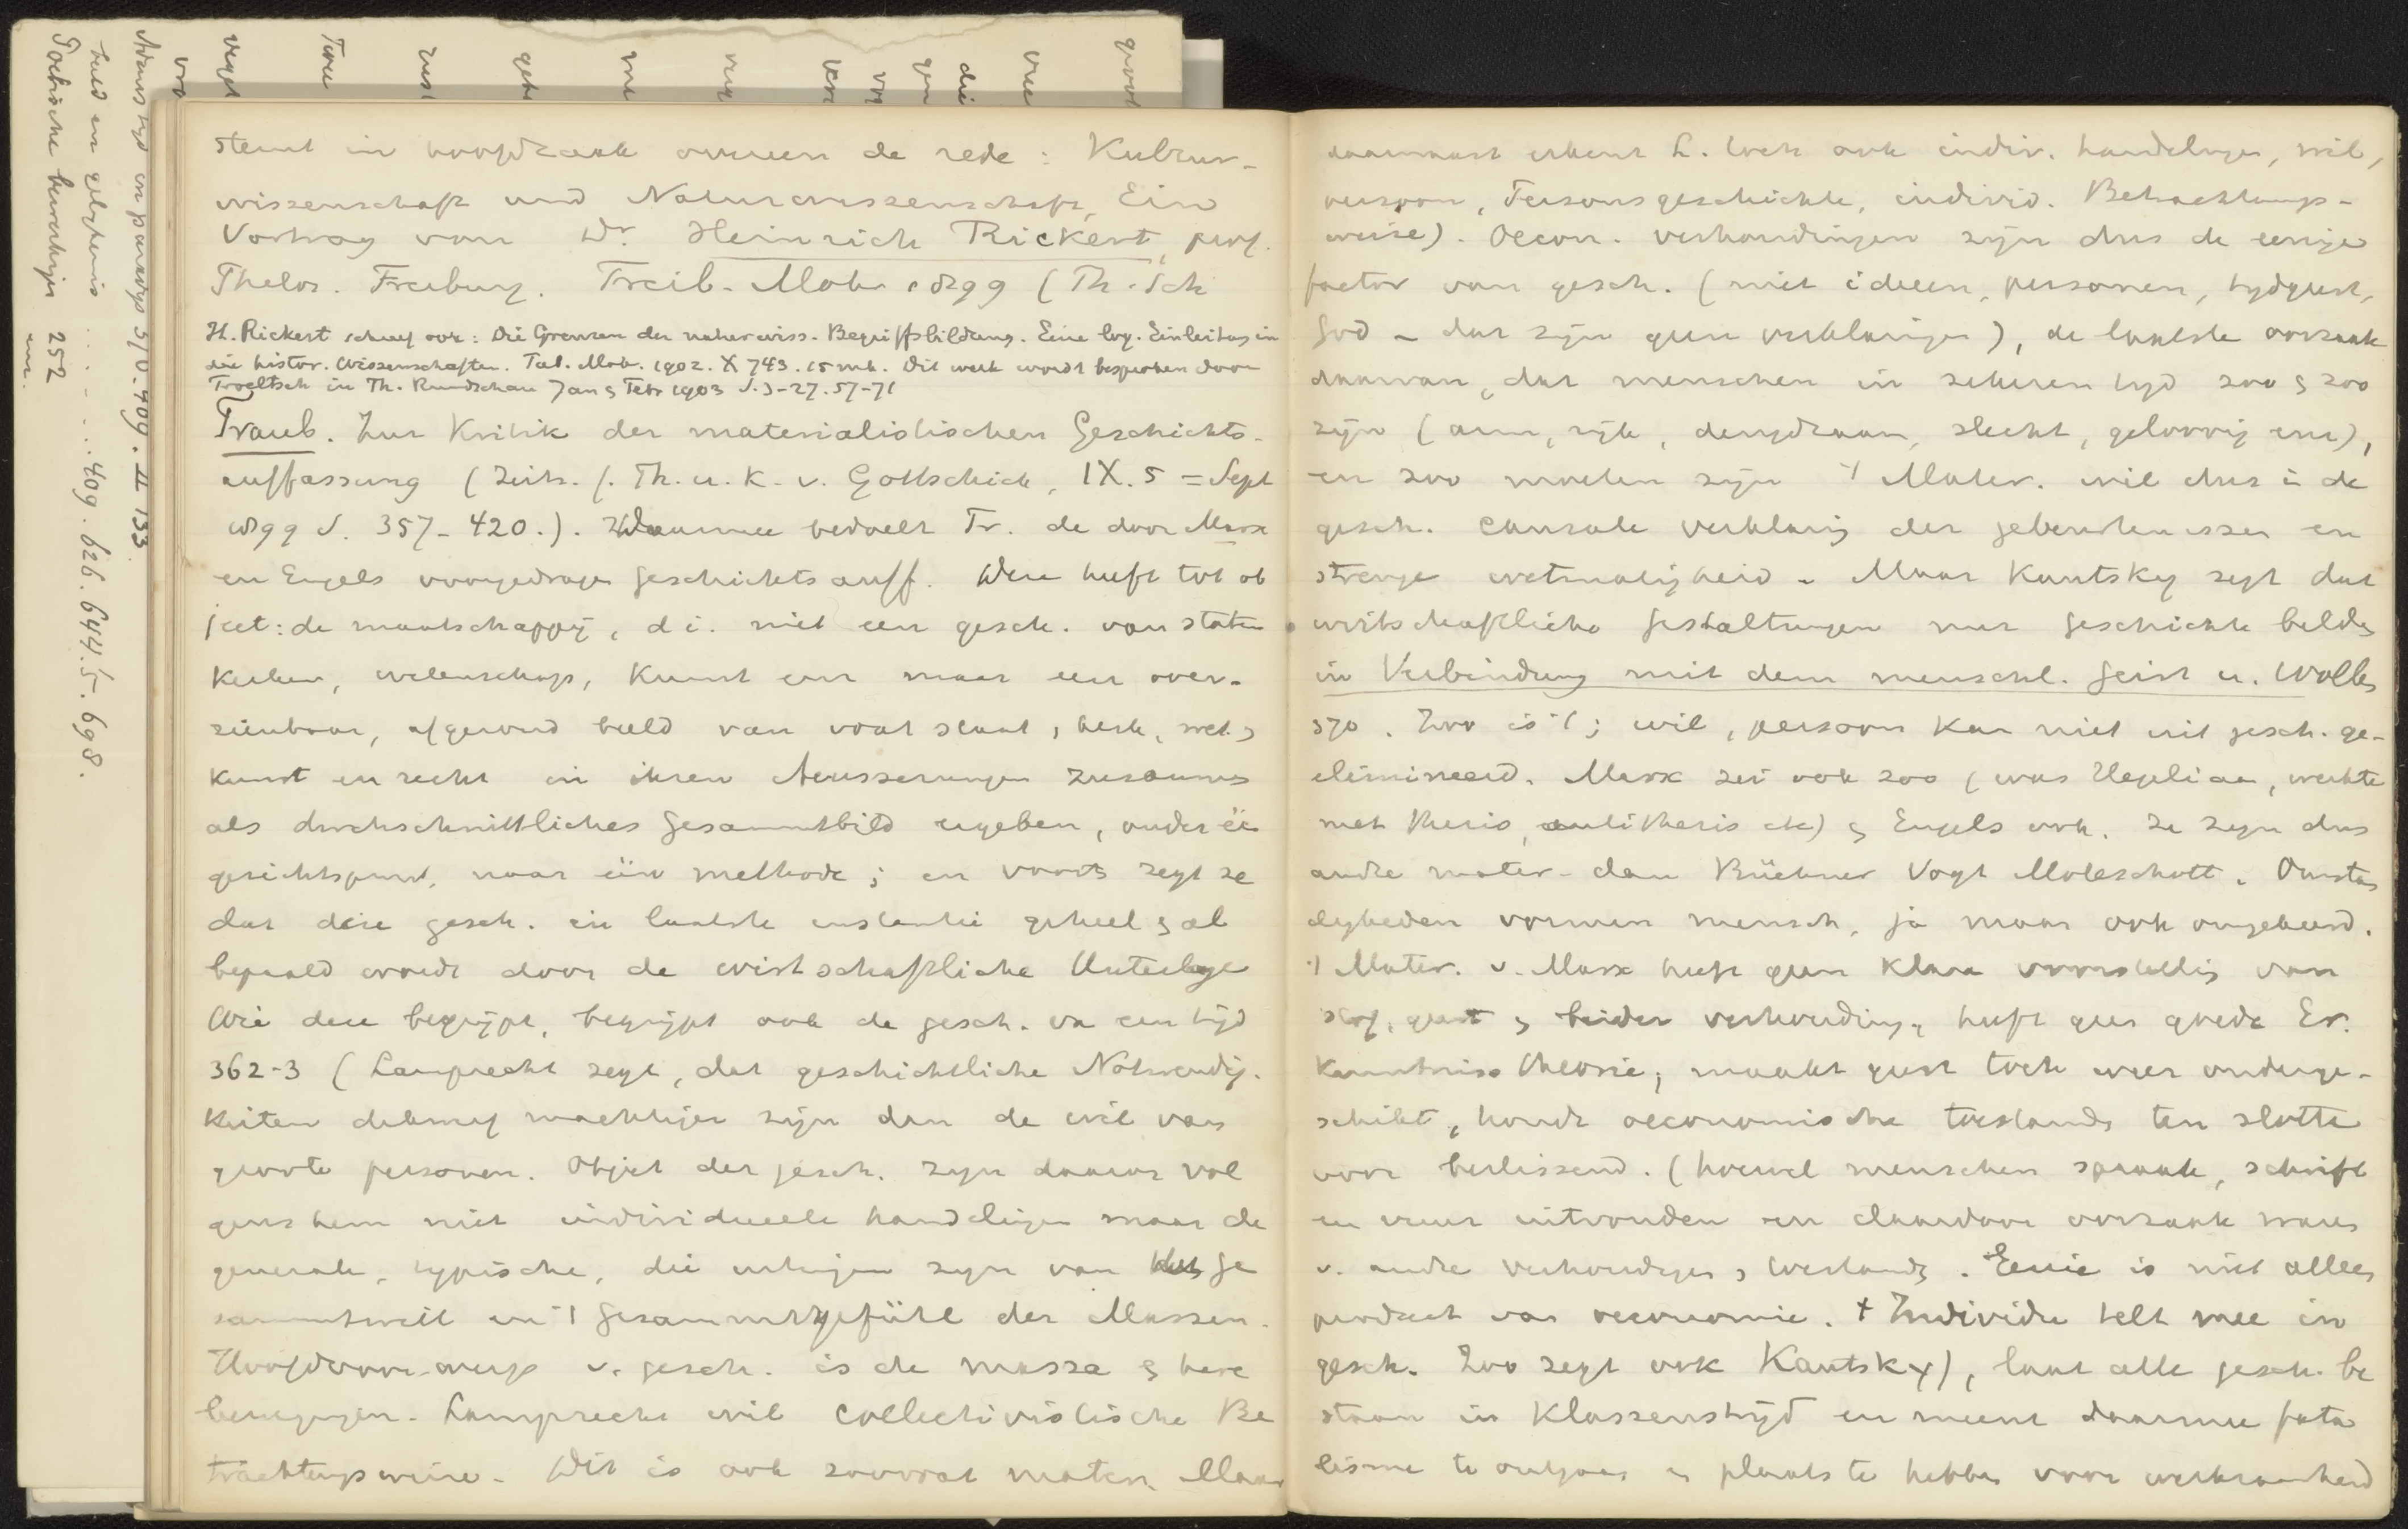 stemt in hoofdzaak overeen de rede: Kultur-
wissenschaft und Naturwissenschaft, Ein
Vortrag von Dr. Heinrich Rickert, prof.
Freiburg. Freib. Mohr 1899 (Th. Sch
H. Rickert schreef ook: Die Grenzen der naturwiss. Begriffsbildung. Eine log. Einleitung in
die histor. Wissenschaften. Tüb. Mohr. 1902. X 743. 15 mk. Dit werk wordt besproken door
Troeltsch in Th. Rundschau Jan & Febr 1903 S. 3-27. 57-71
Traub. Zur Kritik der materialistischen Geschichts-
auffassung (Zeits. f. Th. u. K. v. Gottschick, IX. 5 = Sept
1899 S. 357-420.). Daarmee bedoelt Tr. de door Marx
en Engels voorgedragen Geschichtsauff. Deze heeft tot ob
ject: de maatschappij, d i. niet een gesch. van staten
kerken, wetenschap, kunst enz maar een over-
zienbaar, afgerond beeld van wat staat, kerk, wet. &
kunst en recht in ihren Aeusserungen zusammen
als durchschnittliches Gesammtbild ergeben, onder één
gezichtspunt, naar één methode; en voorts zegt ze
dat deze gesch. in laatste instantie geheel & al
bepaald wordt door de wirtschaftliche Unterlage
Wie deze begrijpt, begrijpt ook de gesch. van een tijd
362-3 (Lamprecht zegt, dat geschichtliche Notwendig-
keiten machtiger zijn dan de wil van
groote personen. Object der gesch. zijn daarom vol
gens hem niet individueele handelingen maar de
generale, typische, die uitingen zijn van Ge
sammtwill en 't Gesammtgefühl der Massen.
Hoofdvoorwerp v. gesch. is de massa & hare
bewegingen. Lamprecht wil collectivistische Be
trachtungsweise. Dit is ook zoowat mater. Maar
daarnaast erkent L. toch ook indiv. handelingen, wil,
persoon, Personsgeschichte, individ. Betrachtungs-
weise). Oecon. verhoudingen zijn dus de eenige
factor van gesch. (niet ideeen, personen, tydgeest,
God – dat zijn geen verklaringen), de laatste oorzaak
daarvan, dat menschen in zekeren tyd zoo & zoo
zijn (arm, rijk, deugdzaam, slecht, geloovig enz),
en zoo moeten zijn 't Mater. wil dus in de
gesch. causale verklaring der gebeurtenissen en
strenge wetmatigheid. Maar Kautsky zegt dat
wirtschaftliche Gestaltungen nur Geschichte bilden
in Verbindung mit dem menschl. Geist u. Wollen
370. Zoo is 't; wil, persoon kan niet uit gesch. ge-
elimineerd. Marx zei ook zoo (was Hegeliaan, werkte
met thesis, antithesis etc) & Engels ook. Ze zijn dus
andre mater. dan Büchner Vogt Moleschott. Omstan
digheden vormen mensch, ja maar ook omgekeerd.
't Mater. v. Marx heeft geen klare voorstelling van
stof, geest & beider verhouding, heeft geen goede Er.
kenntniss theorie; maakt geest toch weer onderge-
schikt, houdt oeconomische toestanden ten slotte
voor beslissend. (hoewel menschen spraak, schrift
en vuur uitvonden en daardoor oorzaak waren
v. andre verhoudingen & toestanden. Genie is niet alleen
product van oeconomie. + Individu telt mee in
gesch. Zoo zegt ook Kautsky), laat alle gesch. be
staan in klassenstrijd en meent daarmee fata
lisme te ontgaan en plaats te hebben voor werkzaamheid
Adams tyd en paradys 370. 409. II 133
taal en 409. 626. 644.5. 698.
252
enz.